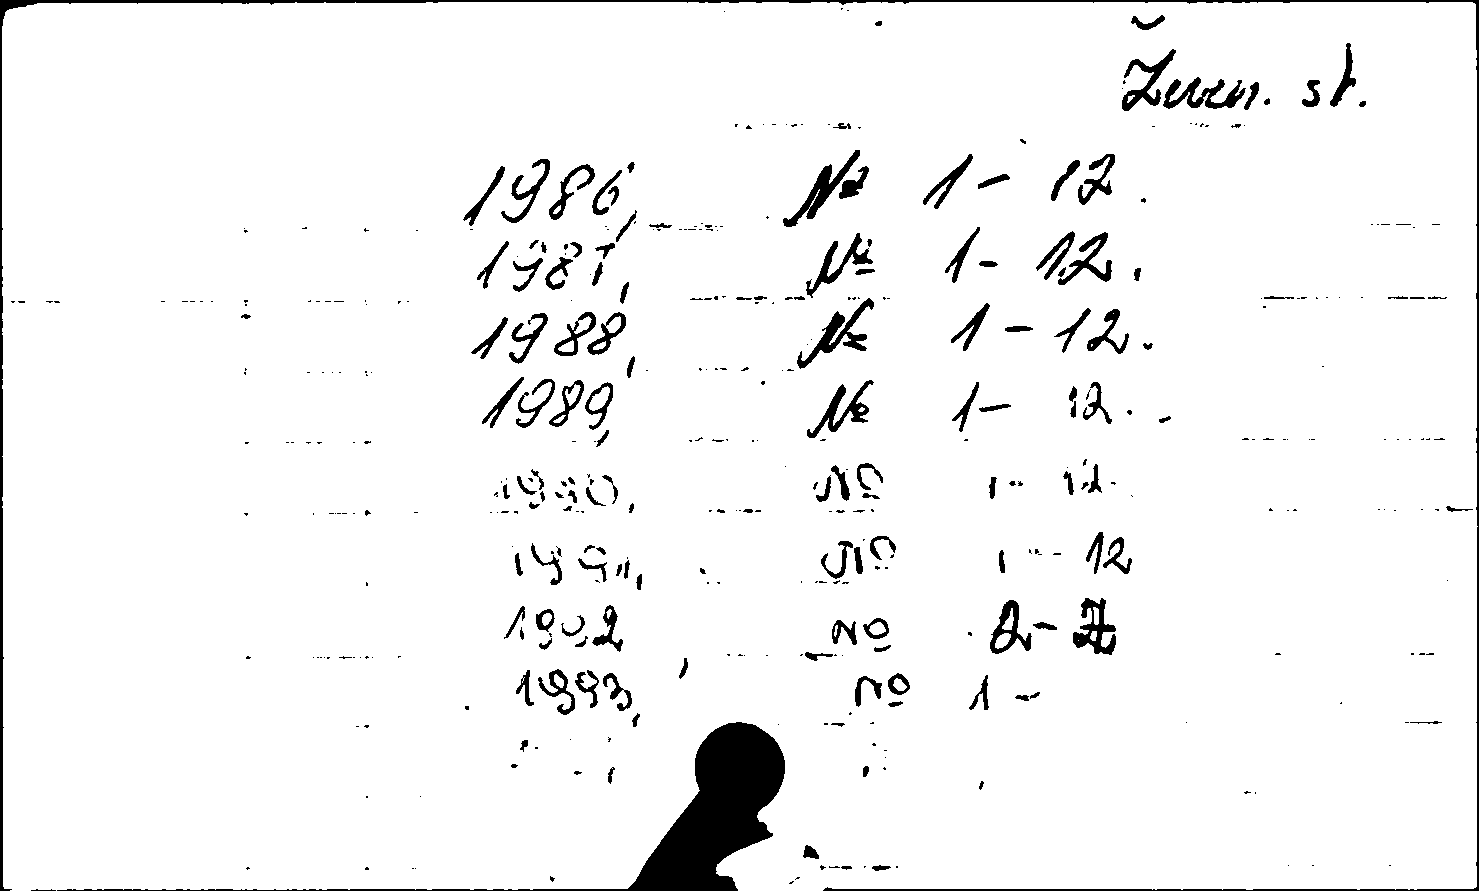 Žurn. st.
1986, № 1 - 12.
1987, № 1 - 12.
1988, № 1 - 12.
1989, № 1 - 12.
1990, № 1 - 12.
1991, № 1 - 12
1992, № 2 -
1993, № 1 -